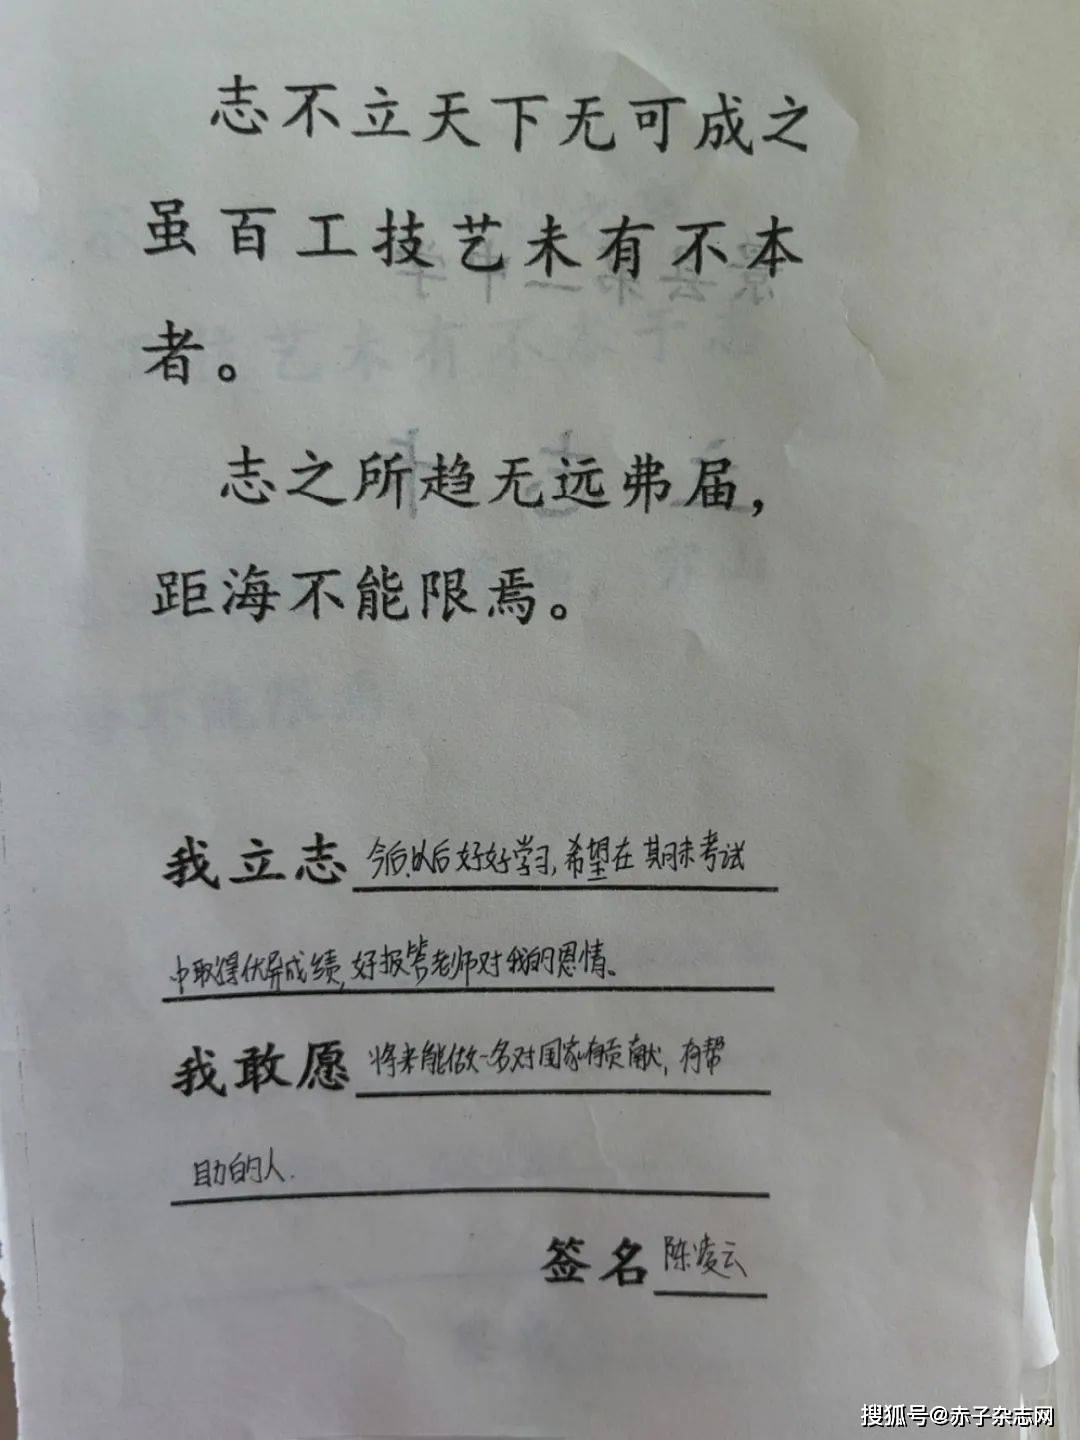 志不立天下无可成之
虽百工技艺未有不本
者。
志之所趋无远弗届，
距海不能限焉。
我立志 今后以后好好学习，希望在期末考试
中取得优异成绩，好报答老师对我的恩情、
我敢愿 将来能做一名对国家有贡献，有帮
助的人.
签名 陈凌云
搜狐号@赤子杂志网